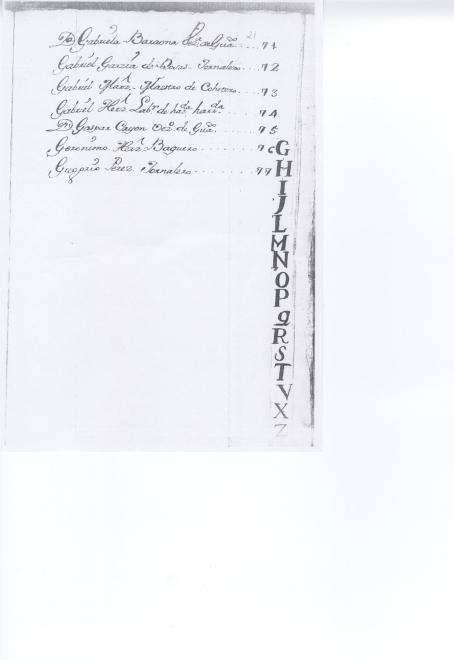 Gabriela Baraona de Gua. 71
21
Gabriel Garcia de Jornalero 72
Gabriel Mārz. Maestro de Coheteros 73
Gabriel Herz Labr. de 74
Gaspar Cayon Vez. de Gua. 75
Geronimo Herz Baquero 76
Gregorio Perez Jornalero 77
G
H
I
J
L
M
N
O
P
Q
R
S
T
V
X
Z